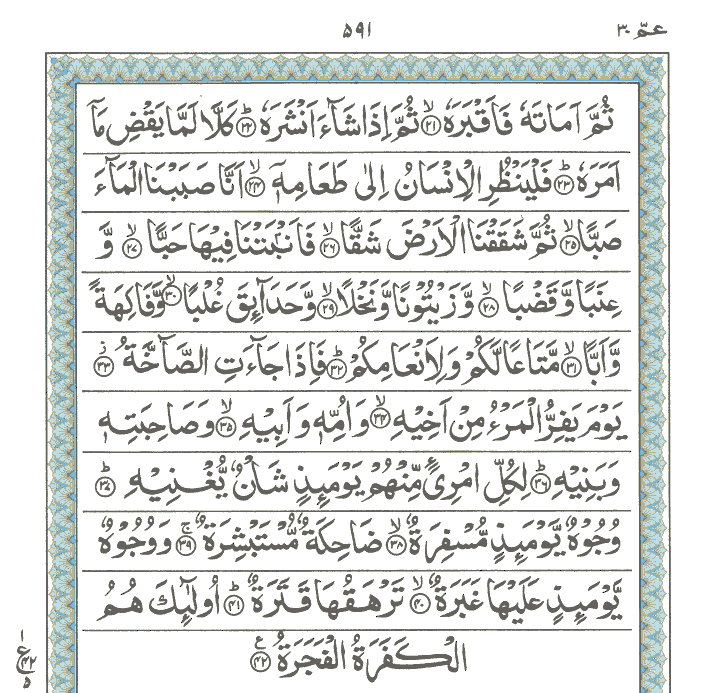 عمّ ٣٠
٥٩١
ثُمَّ اَمَاتَهٗ فَاَقْبَرَهٗ ۙ‏﴿۲۱﴾ ثُمَّ اِذَا شَآءَ اَنْشَرَهٗ ؕ‏﴿۲۲﴾ كَلَّا لَمَّا يَقْضِ مَاۤ
اَمَرَهٗ ؕ‏﴿۲۳﴾ فَلْيَنْظُرِ الْاِنْسَانُ اِلٰى طَعَامِهٖۤ ۙ‏﴿۲۴﴾ اَنَّا صَبَبْنَا الْمَآءَ
صَبًّا ۙ‏﴿۲۵﴾ ثُمَّ شَقَقْنَا الْاَرْضَ شَقًّا ۙ‏﴿۲۶﴾ فَاَنْۢبَتْنَا فِيْهَا حَبًّا ۙ‏﴿۲۷﴾ وَّ
عِنَبًا وَّقَضْبًا ۙ‏﴿۲۸﴾ وَّزَيْتُوْنًا وَّنَخْلًا ۙ‏﴿۲۹﴾ وَّحَدَآئِقَ غُلْبًا ۙ‏﴿۳۰﴾ وَّفَاكِهَةً
وَّاَبًّا ۙ‏﴿۳۱﴾ مَّتَاعًا لَّكُمْ وَلِاَنْعَامِكُمْ ؕ‏﴿۳۲﴾ فَاِذَا جَآءَتِ الصَّآخَّةُ ۫‏﴿۳۳﴾
يَوْمَ يَفِرُّ الْمَرْءُ مِنْ اَخِيْهِ ۙ‏﴿۳۴﴾ وَاُمِّهٖ وَاَبِيْهِ ۙ‏﴿۳۵﴾ وَصَاحِبَتِهٖ
وَبَنِيْهِ ؕ‏﴿۳۶﴾ لِكُلِّ امْرِئٍ مِّنْهُمْ يَوْمَئِذٍ شَاْنٌ يُّغْنِيْهِ ؕ‏﴿۳۷﴾
وُجُوْهٌ يَّوْمَئِذٍ مُّسْفِرَةٌ ۙ‏﴿۳۸﴾ ضَاحِكَةٌ مُّسْتَبْشِرَةٌ ۚ‏﴿۳۹﴾ وَوُجُوْهٌ
يَّوْمَئِذٍ عَلَيْهَا غَبَرَةٌ ۙ‏﴿۴۰﴾ تَرْهَقُهَا قَتَرَةٌ ؕ‏﴿۴۱﴾ اُولٰٓئِكَ هُمُ
الْكَفَرَةُ الْفَجَرَةُ ‏﴿۴۲﴾ ع
١
ع ٤٢
٥